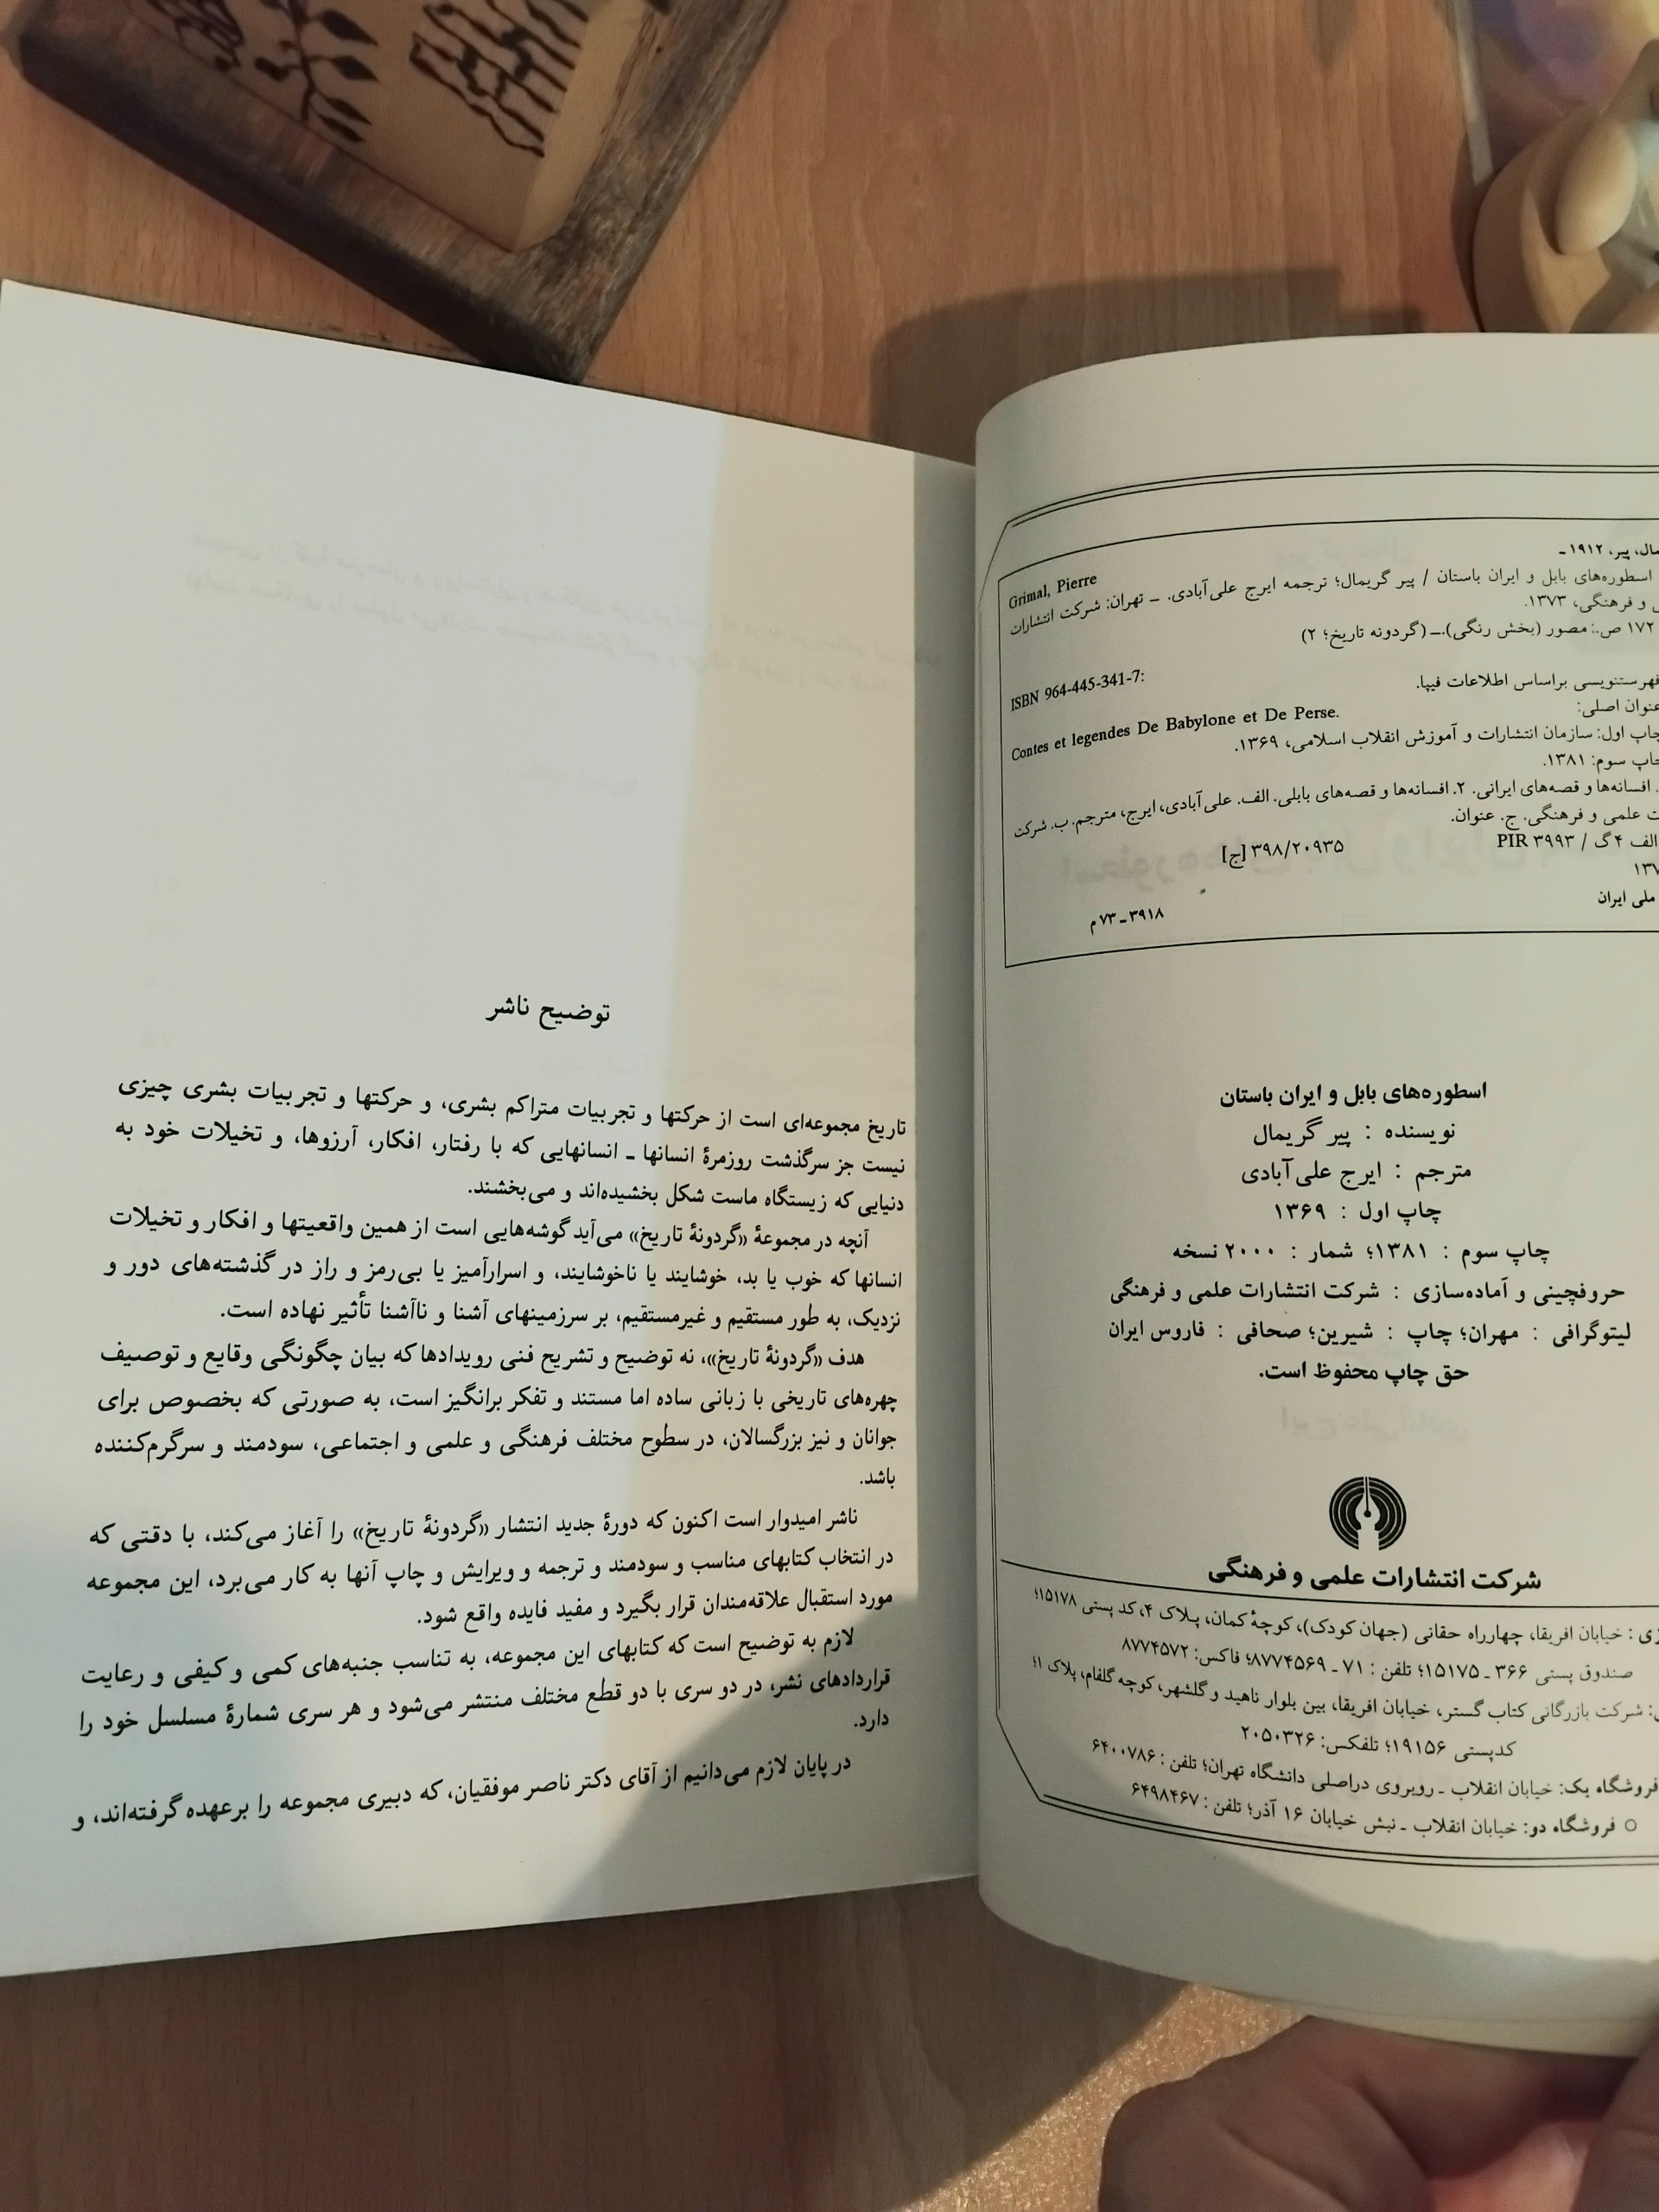 پیر، ۱۹۱۲ ـ
Grimal, Pierre
اسطوره‌های بابل و ایران باستان / پیر گریمال؛ ترجمه ایرج علی‌آبادی. ـ تهران: شرکت انتشارات
و فرهنگی، ۱۳۷۳.
۱۷۲ ص.: مصور (بخش رنگی).ـ (گردونه تاریخ؛ ۲)
ISBN 964-445-341-7:
فهرستنویسی براساس اطلاعات فیپا.
عنوان اصلی:
Contes et legendes De Babylone et De Perse.
چاپ اول: سازمان انتشارات و آموزش انقلاب اسلامی، ۱۳۶۹.
چاپ سوم: ۱۳۸۱.
. افسانه‌ها و قصه‌های ایرانی. ۲. افسانه‌ها و قصه‌های بابلی. الف. علی‌آبادی، ایرج، مترجم. ب. شرکت
علمی و فرهنگی. ج. عنوان.
الف ۴ گ / PIR ۳۹۹۳
۳۹۸/۲۰۹۳۵ [ج]
ملی ایران
۳۹۱۸ ـ ۷۳ م
اسطوره‌های بابل و ایران باستان
نویسنده : پیر گریمال
مترجم : ایرج علی‌آبادی
چاپ اول : ۱۳۶۹
چاپ سوم : ۱۳۸۱؛ شمار : ۲۰۰۰ نسخه
حروفچینی و آماده‌سازی : شرکت انتشارات علمی و فرهنگی
لیتوگرافی : مهران؛ چاپ : شیرین؛ صحافی : فاروس ایران
حق چاپ محفوظ است.
شرکت انتشارات علمی و فرهنگی
: خیابان افریقا، چهارراه حقانی (جهان کودک)، کوچهٔ کمان، پلاک ۴، کد پستی ۱۵۱۷۸؛
صندوق پستی ۳۶۶ ـ ۱۵۱۷۵؛ تلفن : ۷۱ ـ ۸۷۷۴۵۶۹؛ فاکس: ۸۷۷۴۵۷۲
: شرکت بازرگانی کتاب گستر، خیابان افریقا، بین بلوار ناهید و گلشهر، کوچه گلفام، پلاک ۱؛
کدپستی ۱۹۱۵۶؛ تلفکس: ۲۰۵۰۳۲۶
فروشگاه یک: خیابان انقلاب ـ روبروی دراصلی دانشگاه تهران؛ تلفن : ۶۴۰۰۷۸۶
○ فروشگاه دو: خیابان انقلاب ـ نبش خیابان ۱۶ آذر؛ تلفن : ۶۴۹۸۴۶۷
توضیح ناشر
تاریخ مجموعه‌ای است از حرکتها و تجربیات متراکم بشری، و حرکتها و تجربیات بشری چیزی
نیست جز سرگذشت روزمرهٔ انسانها ـ انسانهایی که با رفتار، افکار، آرزوها، و تخیلات خود به
دنیایی که زیستگاه ماست شکل بخشیده‌اند و می‌بخشند.
آنچه در مجموعهٔ «گردونهٔ تاریخ» می‌آید گوشه‌هایی است از همین واقعیتها و افکار و تخیلات
انسانها که خوب یا بد، خوشایند یا ناخوشایند، و اسرارآمیز یا بی‌رمز و راز در گذشته‌های دور و
نزدیک، به طور مستقیم و غیرمستقیم، بر سرزمینهای آشنا و ناآشنا تأثیر نهاده است.
هدف «گردونهٔ تاریخ»، نه توضیح و تشریح فنی رویدادها که بیان چگونگی وقایع و توصیف
چهره‌های تاریخی با زبانی ساده اما مستند و تفکر برانگیز است، به صورتی که بخصوص برای
جوانان و نیز بزرگسالان، در سطوح مختلف فرهنگی و علمی و اجتماعی، سودمند و سرگرم‌کننده
باشد.
ناشر امیدوار است اکنون که دورهٔ جدید انتشار «گردونهٔ تاریخ» را آغاز می‌کند، با دقتی که
در انتخاب کتابهای مناسب و سودمند و ترجمه و ویرایش و چاپ آنها به کار می‌برد، این مجموعه
مورد استقبال علاقه‌مندان قرار بگیرد و مفید فایده واقع شود.
لازم به توضیح است که کتابهای این مجموعه، به تناسب جنبه‌های کمی و کیفی و رعایت
قراردادهای نشر، در دو سری با دو قطع مختلف منتشر می‌شود و هر سری شمارهٔ مسلسل خود را
دارد.
در پایان لازم می‌دانیم از آقای دکتر ناصر موفقیان، که دبیری مجموعه را برعهده گرفته‌اند، و